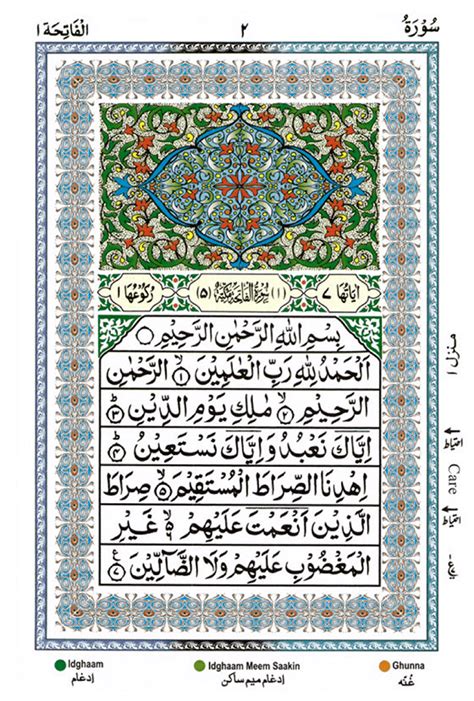 سُوْرَةُ ٢ اَلْفَاتِحَة ١
اٰيَاتُهَا ٧ (١) سُوْرَةُ الْفَاتِحَةِ مَكِّيَّةٌ (٥) رُكُوْعُهَا ١
بِسْمِ اللّٰهِ الرَّحْمٰنِ الرَّحِيْمِ
اَلْحَمْدُ لِلّٰهِ رَبِّ الْعٰلَمِيْنَ ۙ﴿١﴾ الرَّحْمٰنِ
الرَّحِيْمِ ۙ﴿٢﴾ مٰلِكِ يَوْمِ الدِّيْنِ ؕ﴿٣﴾
اِيَّاكَ نَعْبُدُ وَاِيَّاكَ نَسْتَعِيْنُ ؕ﴿٤﴾
اِهْدِنَا الصِّرَاطَ الْمُسْتَقِيْمَ ۙ﴿٥﴾ صِرَاطَ
الَّذِيْنَ اَنْعَمْتَ عَلَيْهِمْ ۙ۬﴿٦﴾ غَيْرِ
الْمَغْضُوْبِ عَلَيْهِمْ وَلَا الضَّآلِّيْنَ ﴿٧﴾ ع
منزل ١
احتیاط
Care
احتیاط
Idghaam
إدغام
Idghaam Meem Saakin
إدغام ميم ساكن
Ghunna
غُنّه